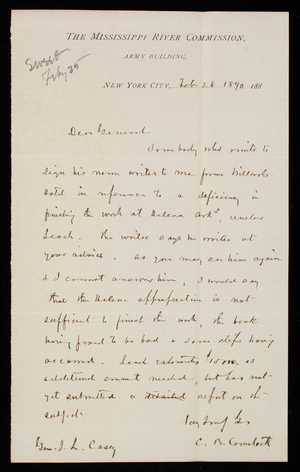 THE MISSISSIPPI RIVER COMMISSION,
ARMY BUILDING,
NEW YORK CITY, Feb 26 1890 188
Dear General
Somebody who omits to
sign his name writes to me from Willards
Hotel in reference to a deficiency in
finishing the work at Helena Ark, under
Leach. The writer says he writes at
your advice. As you may see him again
& I cannot answer him, I would say
that the Helena appropriation is not
sufficient to finish the work, the bank
having proved to be bad & some delays having
occurred. Leach estimates $15000. as
additional amount needed, but has not
yet submitted a detailed report on the
subject.
Very truly Yrs
Gen. T. L. Casey
C. B. Comstock